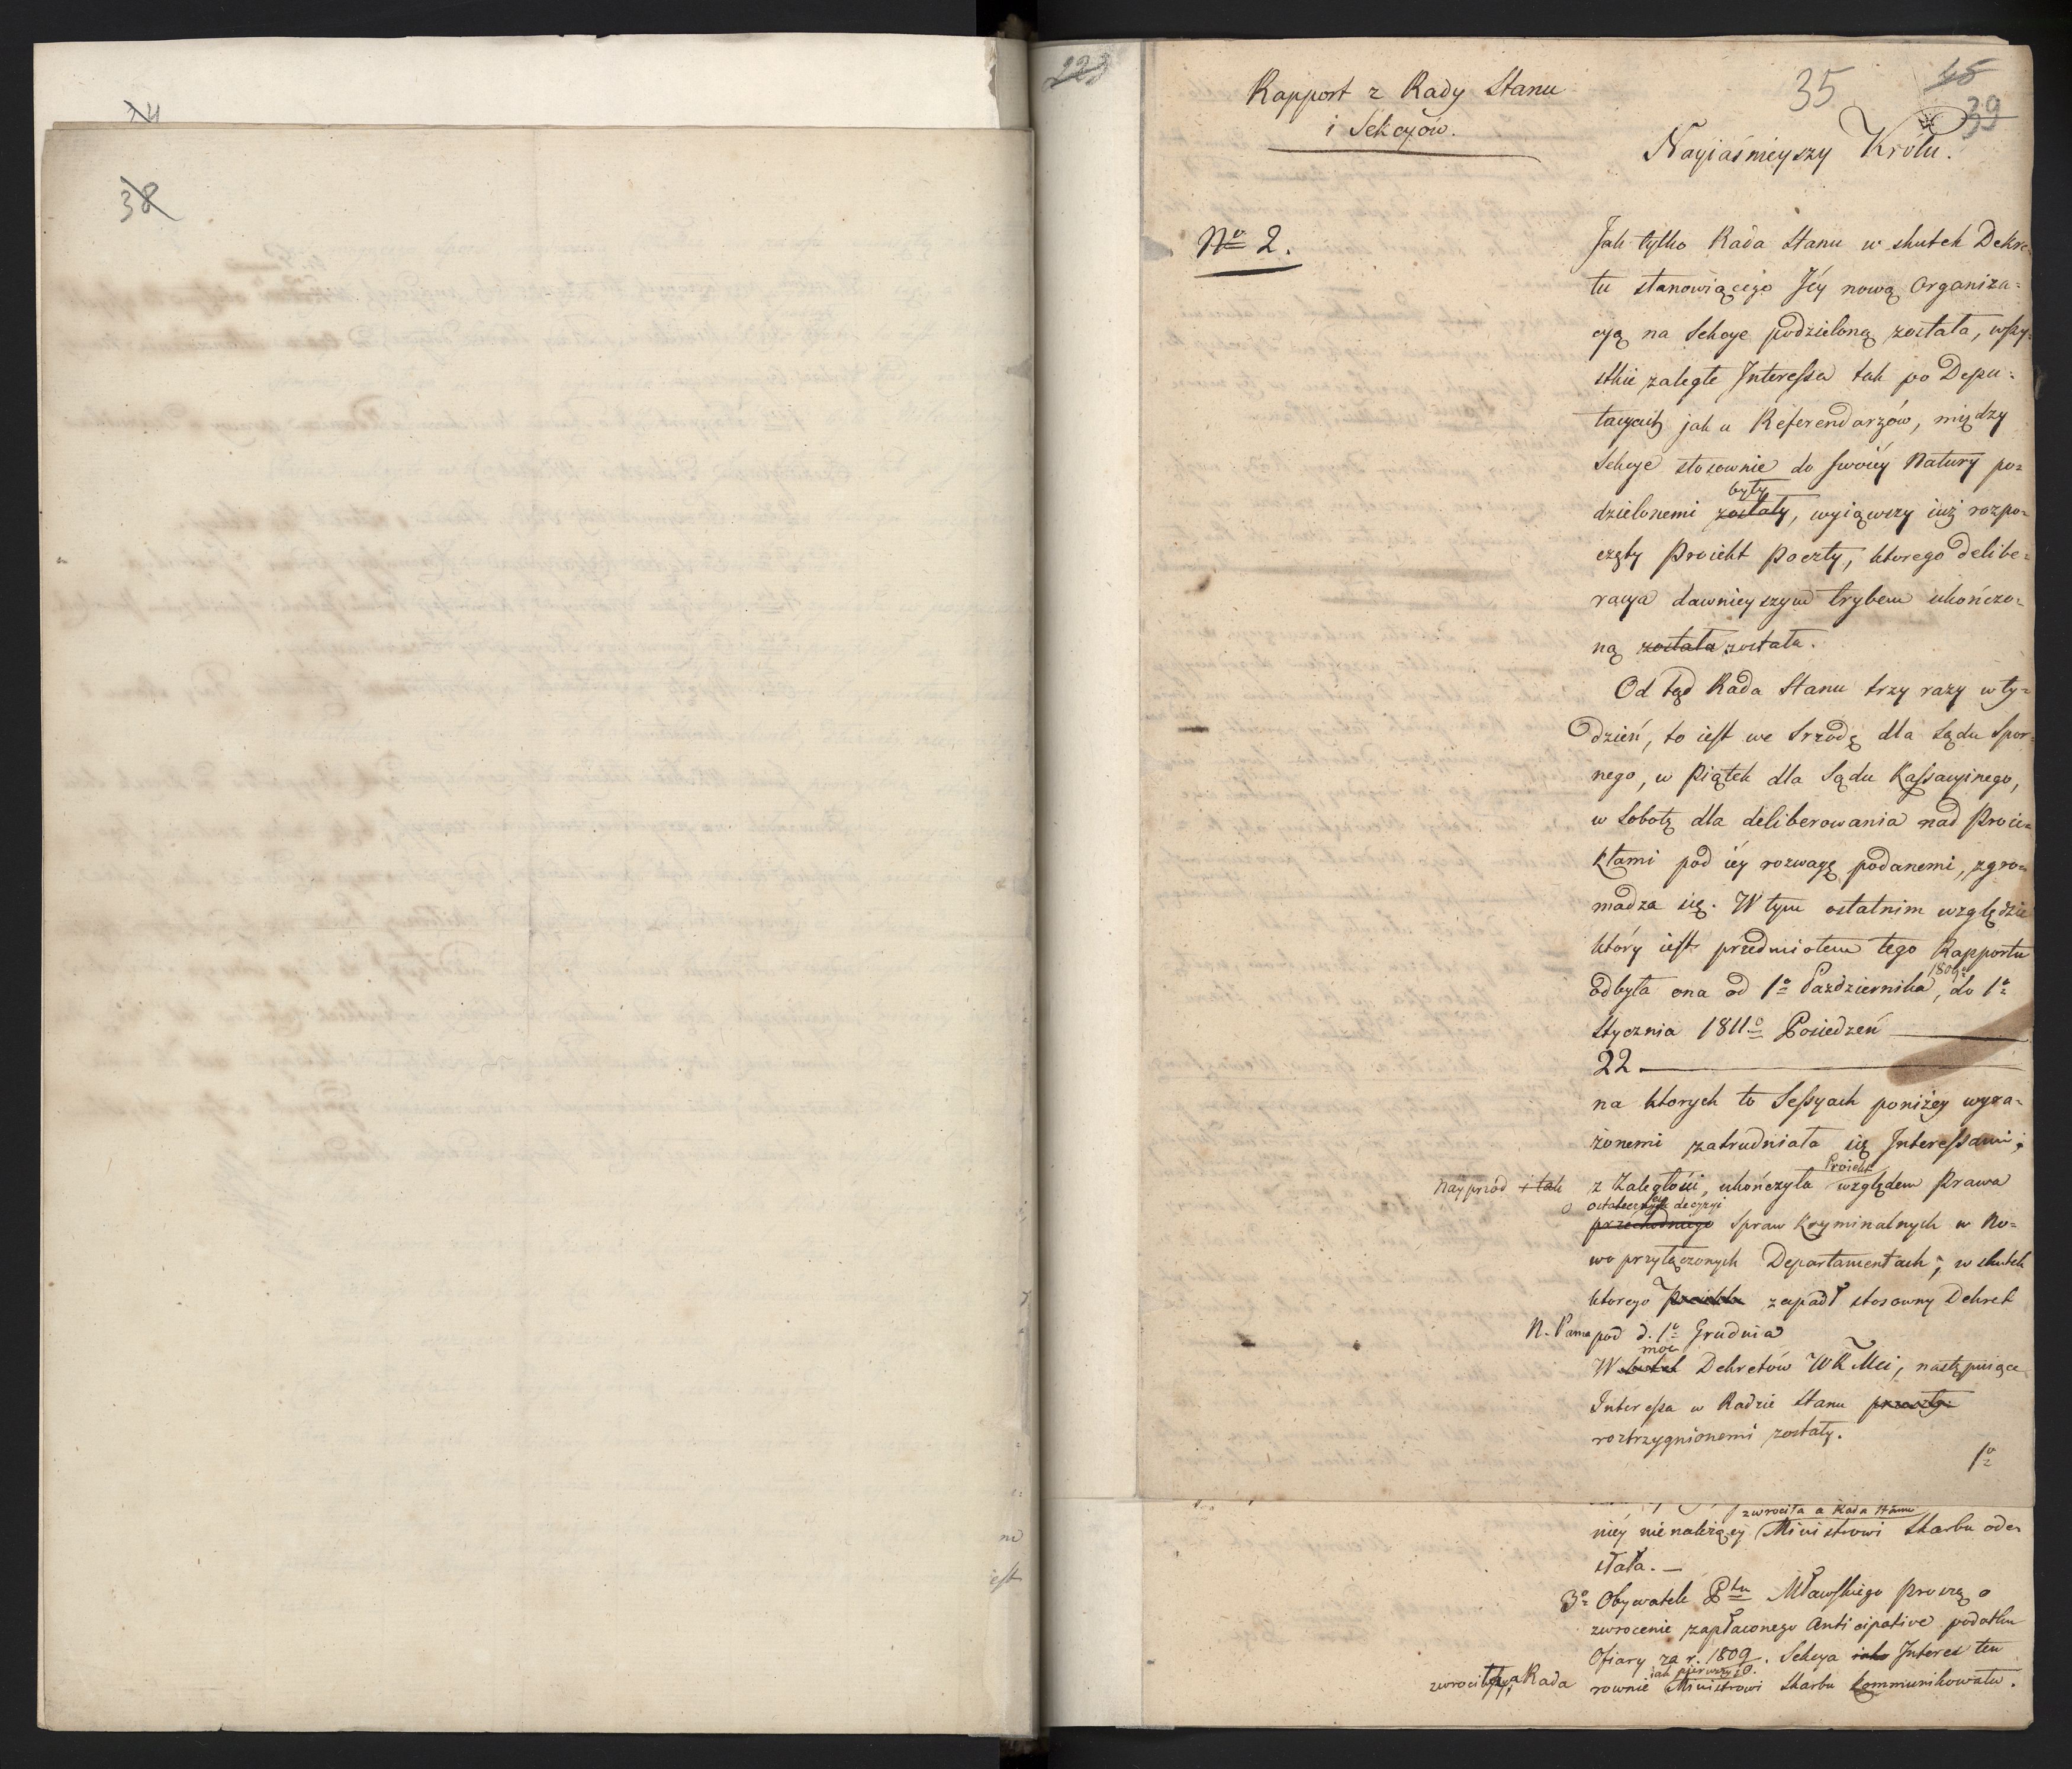 34
38
223
Rapport z Rady Stanu
i Sekcyów.
35
45
39
Nayiaśnieyszy Królu.
No 2.
Jak tylko Rada Stanu w skutek Dekre-
tu stanowiącego Jéy nową Organiza-
cyą na Sekcye podzieloną została, wszy-
stkie zaległe Interessa tak po Depu-
tacyach jak u Referendarzów, między
Sekcye stosownie do swoiéy Natury po-
były
dzielonemi zostały, wyiąwszy iuż rozpo-
częty Proiekt Poczty, ktorego delibe-
racya dawnieyszym trybem ukończo-
ną została została.
Od tąd Rada Stanu trzy razy w ty-
dzień, to iest we Srzodę dla Sądu Spor-
nego, w Piątek dla Sądu Kassacyinego,
w Sobotę dla deliberowania nad Proie-
ktami pod iéy rozwagę podanemi, zgro-
madza się. W tym ostatnim względzie
który iest przedmiotem tego Rapportu
1809o
odbyła ona od 1o Października, do 1o
Stycznia 1811o Posiedzeń
22.
na ktorych to Sessyach poniżey wyra-
żonemi zatrudniała się Interessami;
Proiekt
Nayprzód i tak z Zaległości, ukończyła względem Prawa
o ostateczney decyzyi
przechodniego Spraw Kryminalnych w No-
wo przyłączonych Departamentach; w skutek
ktorego Proiektu zapadł stosowny Dekret
N. Pana pod d. 1o Grudnia
moc
W skutek Dekretów WKMci, następuiące
Interessa w Radzie Stanu przeszły
roztrzygnionemi zostały.
1o
zwrociła a Rada Stanu
niéy nienależący Ministrowi Skarbu ode-
słała. —
3o Obywatele Ptu Mławskiego proszą o
zwrocenie zapłaconego Anticipative podatku
Ofiary za r. 1809. Sekcya iako Interes ten
iak pierwszy
zwrociła, a Rada rownie Ministrowi Skarbu kommunikowała.
ne
est